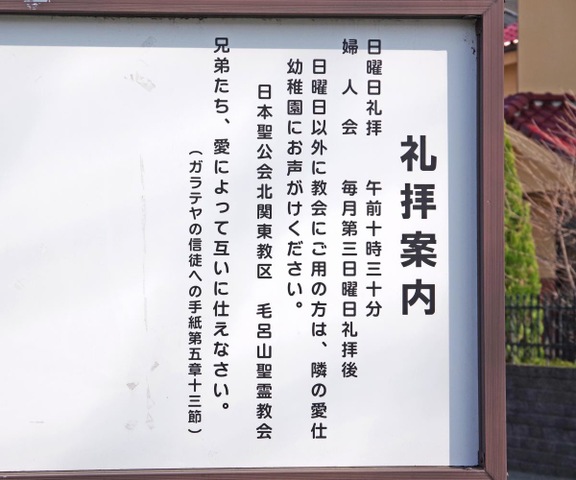 礼拝案内
日曜日礼拝　午前十時三十分
婦人会　毎月第三日曜日礼拝後
日曜日以外に教会にご用の方は、隣の愛仕
幼稚園にお声がけください。
日本聖公会北関東教区　毛呂山聖霊教会
兄弟たち、愛によって互いに仕えなさい。
（ガラテヤの信徒への手紙第五章十三節）